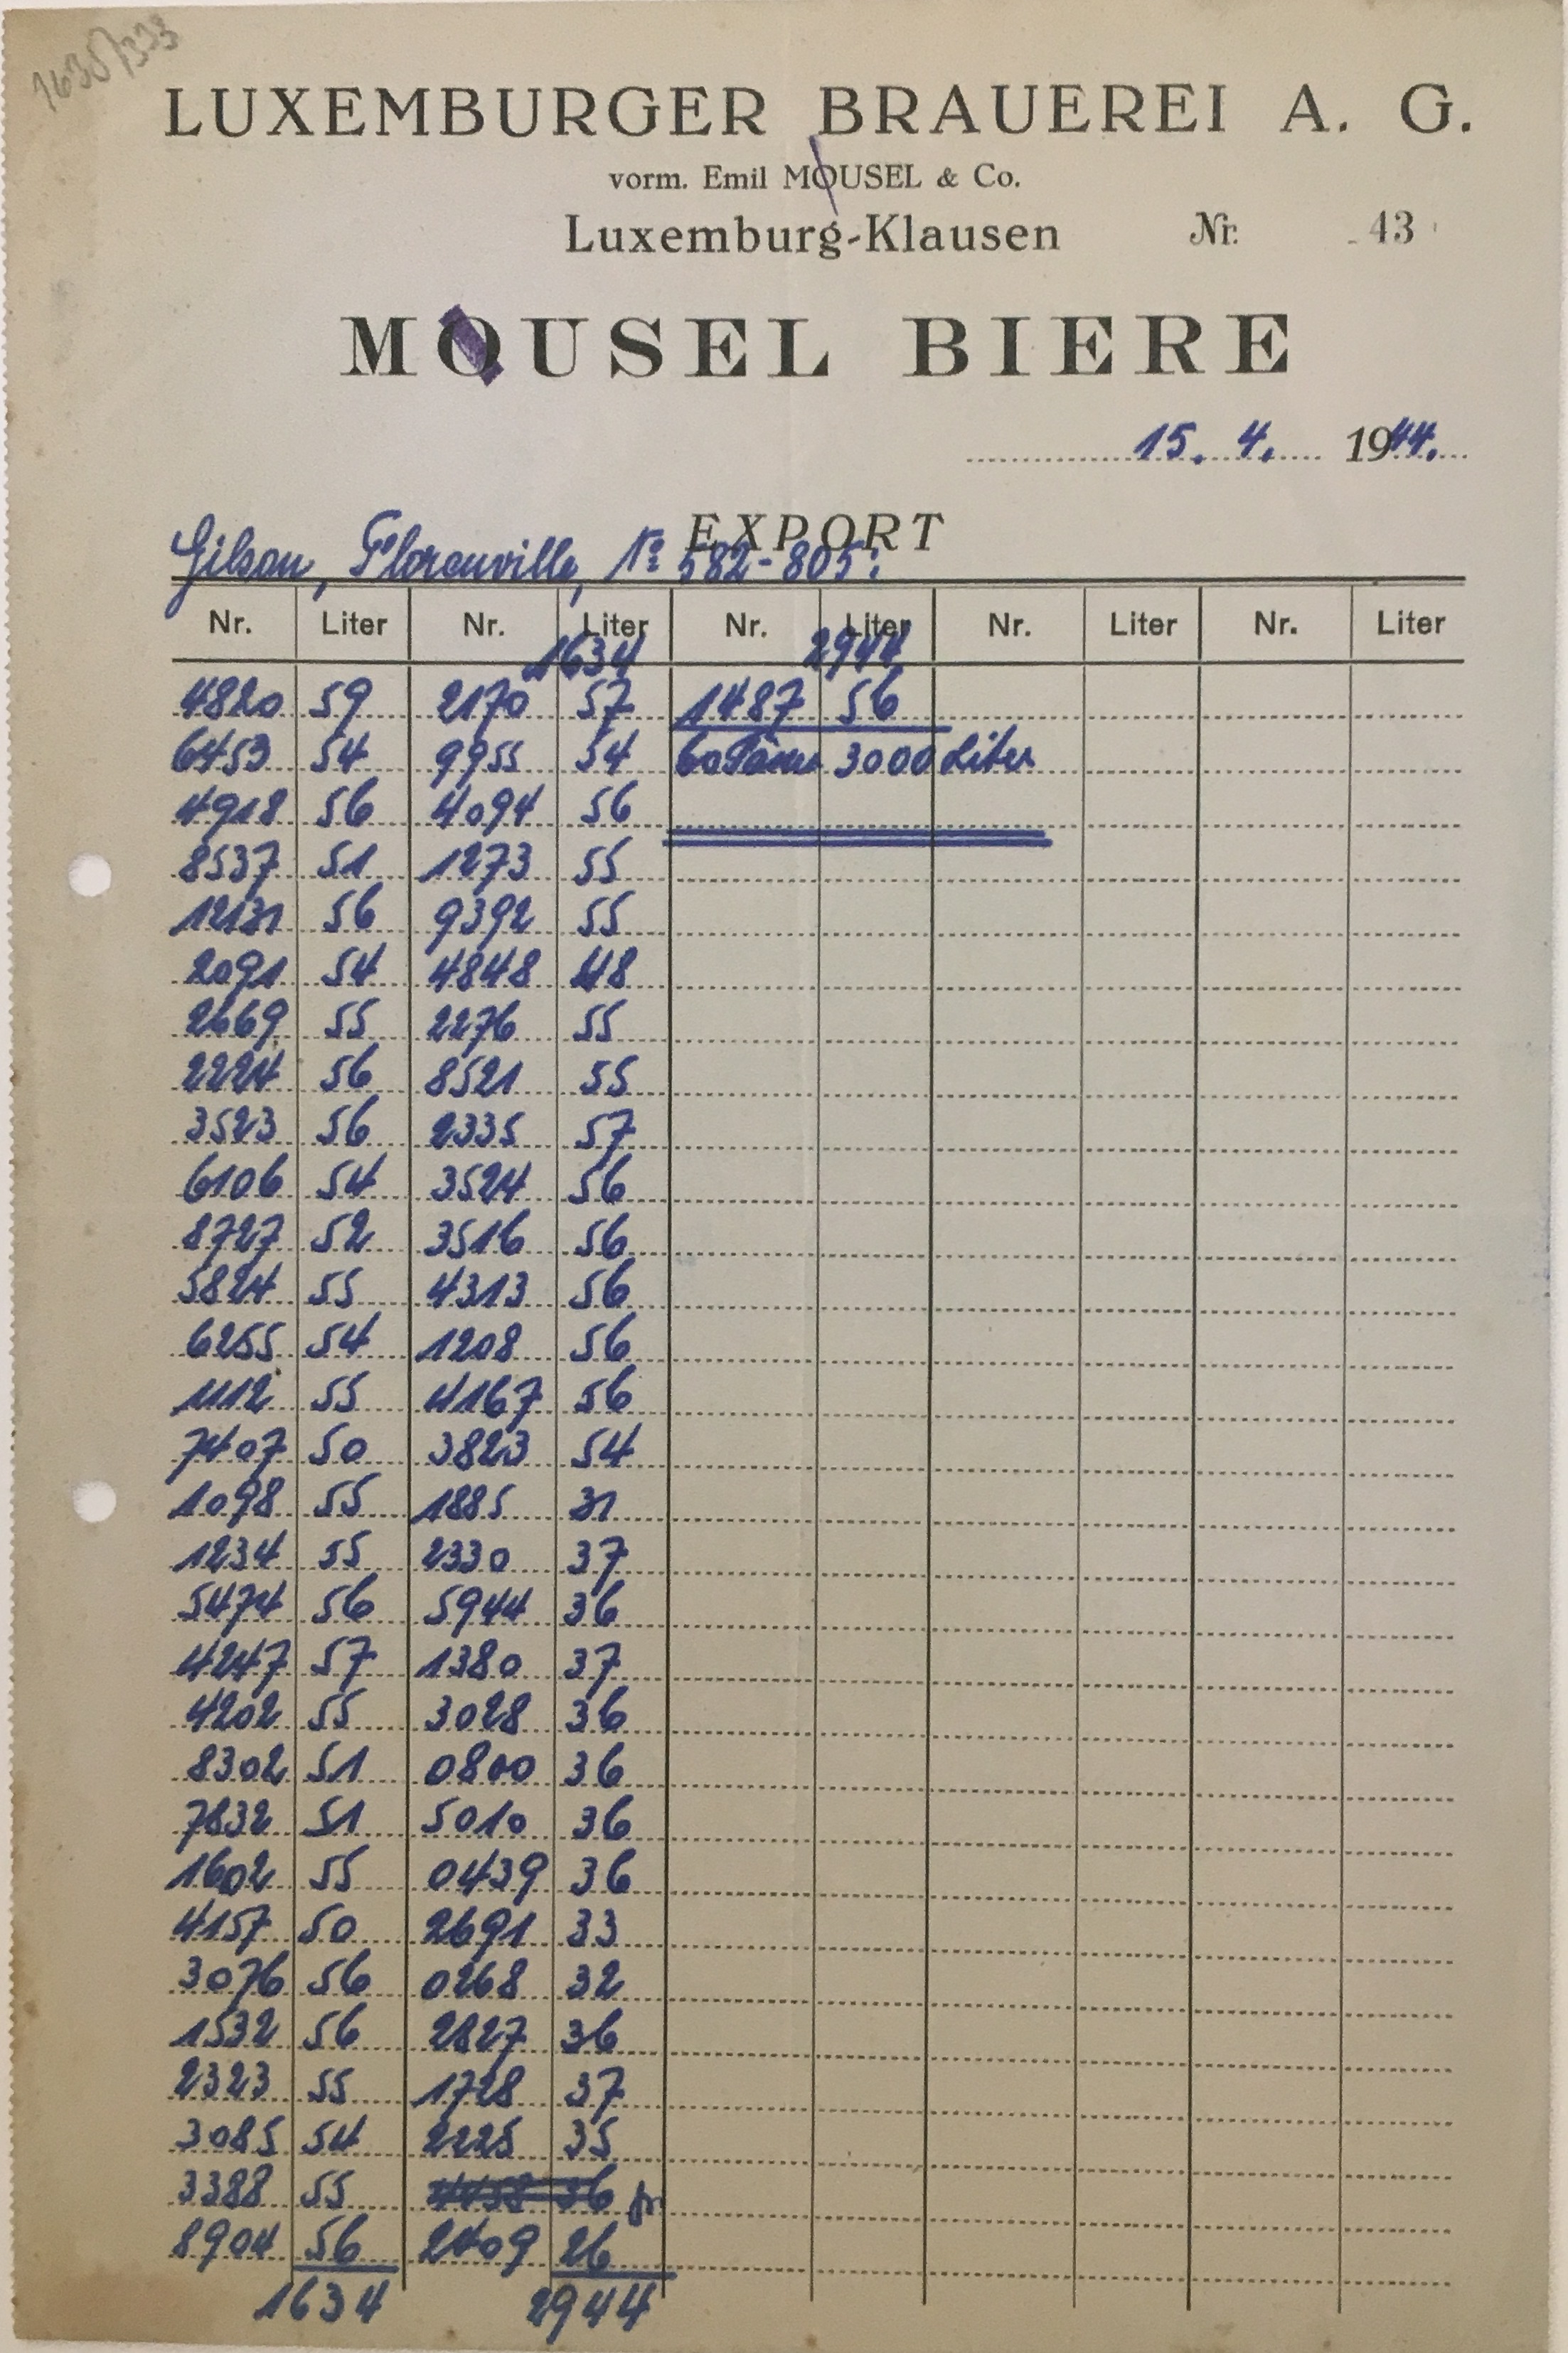 1635/333
LUXEMBURGER BRAUEREI A. G.
vorm. Emil MOUSEL & Co.
Luxemburg-Klausen Nr. 43
MOUSEL BIERE
15. 4. 1944.
EXPORT
Gilson, Florenville, No 582-805:
Nr. Liter Nr. Liter Nr. Liter Nr. Liter Nr. Liter
1634 2944
4820 59 2170 57 1487 56
6453 54 9955 54 60 3000 Liter
4918 56 4094 56
8537 51 1273 55
12131 56 9392 55
2091 54 4848 48
2669 55 2276 55
2224 56 8521 55
3523 56 2335 57
6106 54 3524 56
8727 52 3516 56
5824 55 4313 56
6255 54 1208 56
1112 55 4167 56
7407 50 3823 54
1098 55 1885 31
1234 55 2330 37
5474 56 5944 36
4247 57 1380 37
4202 55 3028 36
8302 51 0800 36
7832 51 5010 36
1602 55 0439 36
4157 50 2691 33
3076 56 0268 32
1532 56 2827 36
2323 55 1728 37
3085 54 2225 35
3388 55 36
8904 56 2409 26
1634 2944